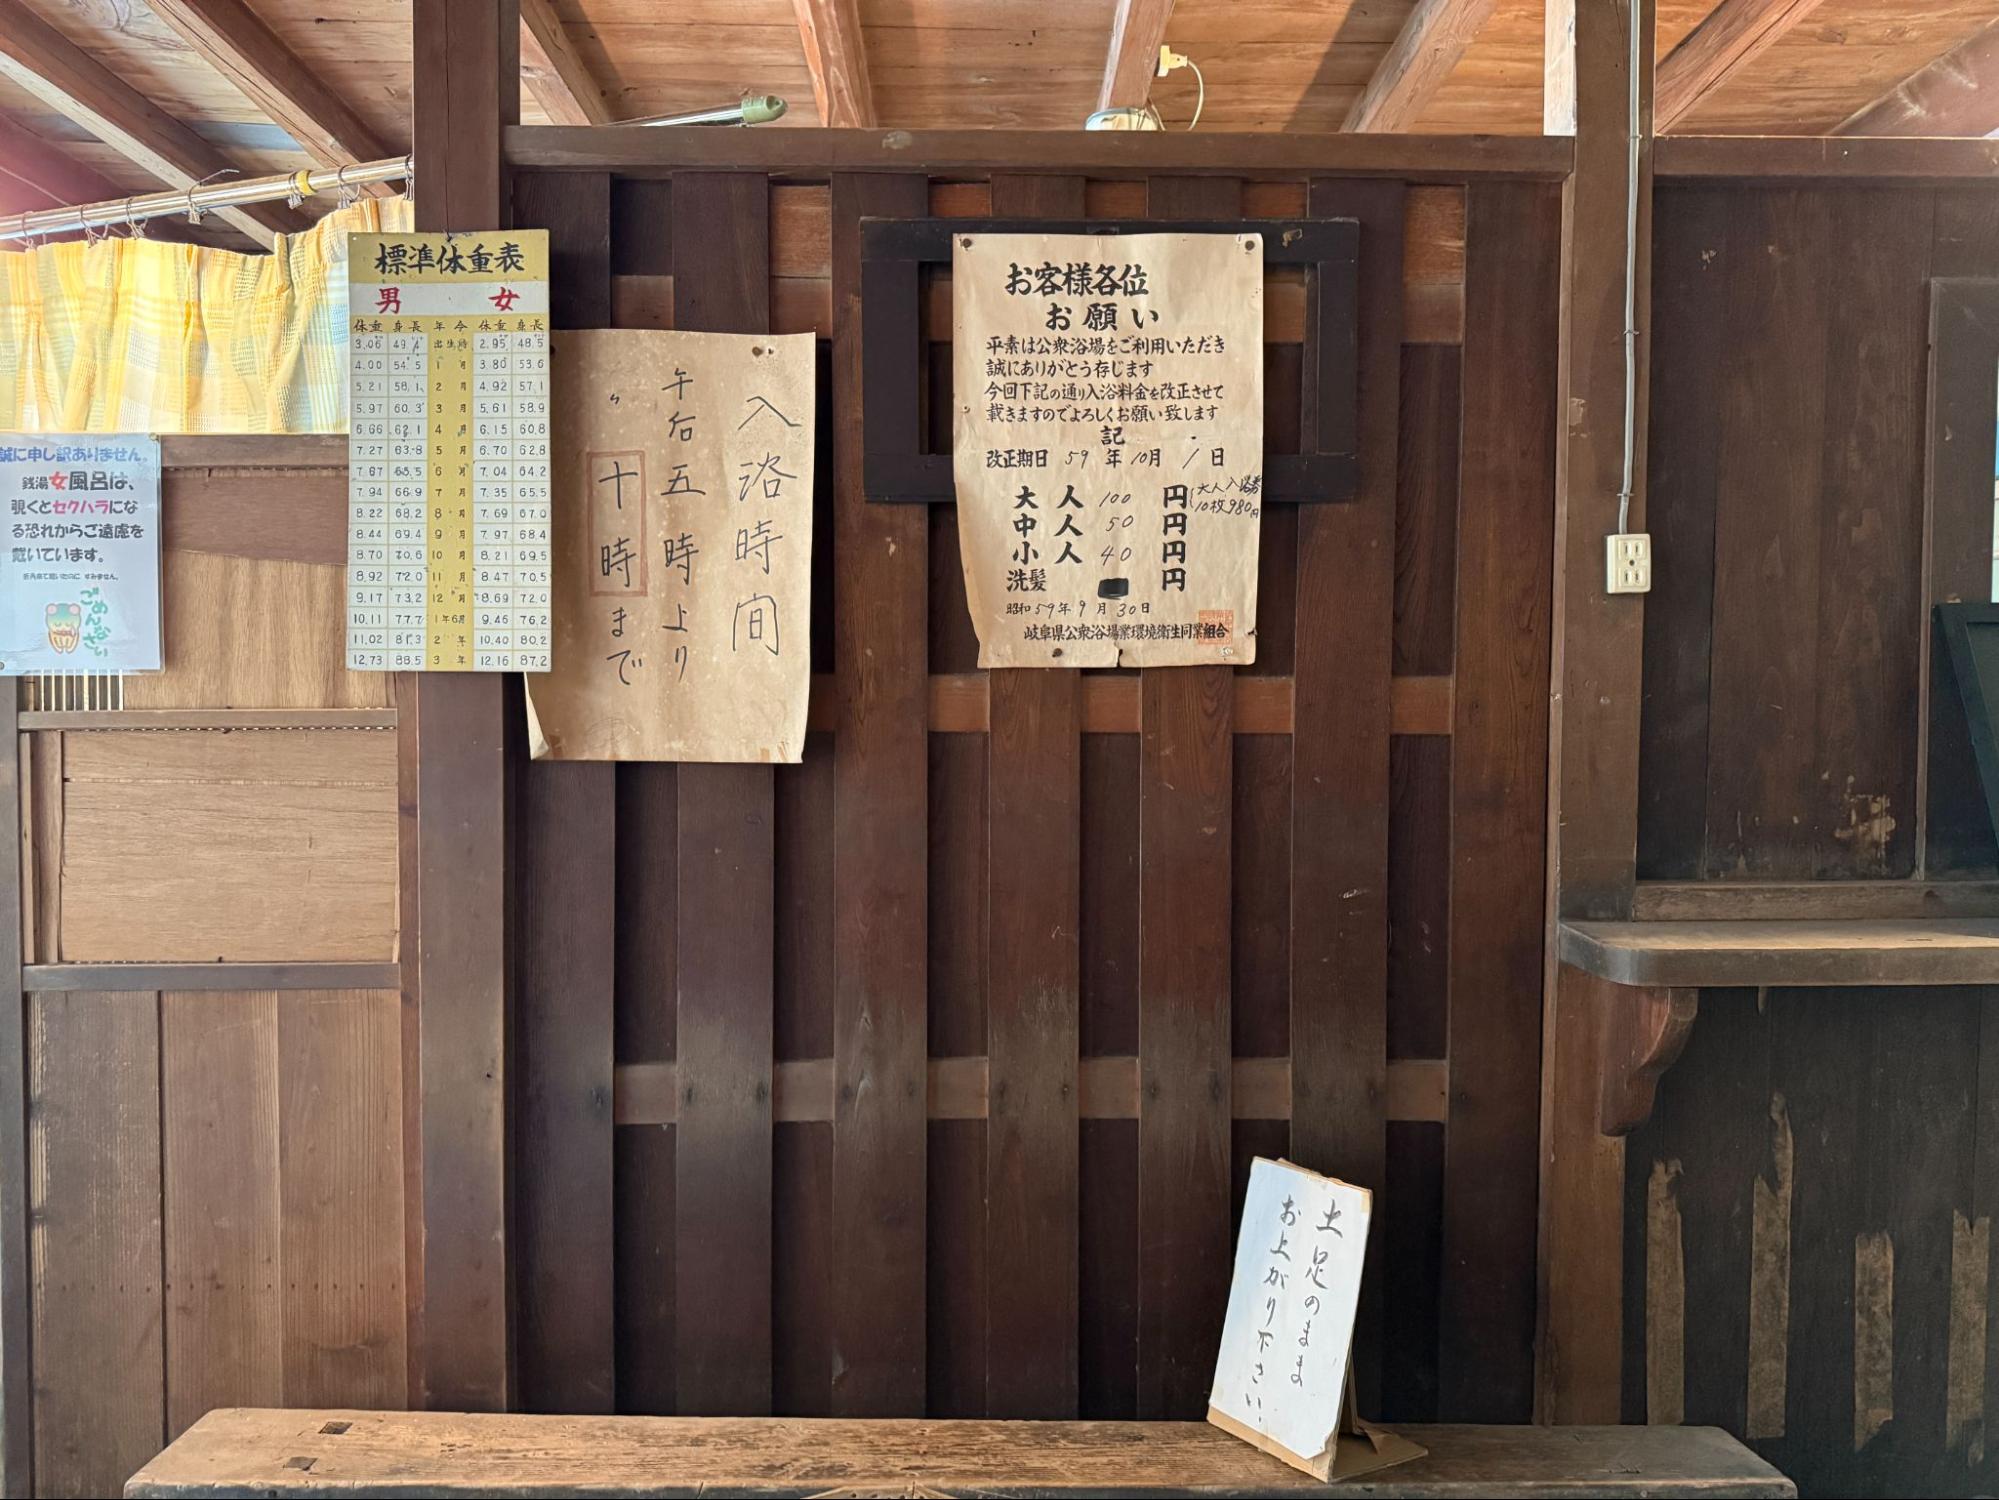 誠に申し訳ありません。
銭湯女風呂は、
覗くとセクハラにな
る恐れからご遠慮を
戴いています。
ごめんなさい
標準体重表
男 女
体重 身長 年令 体重 身長
3.06 49.4 出生時 2.95 48.5
4.00 54.5 1月 3.80 53.6
5.21 58.1 2月 4.92 57.1
5.97 60.3 3月 5.61 58.9
6.66 62.1 4月 6.15 60.8
7.27 63.8 5月 6.70 62.8
7.67 65.5 6月 7.04 64.2
7.94 66.9 7月 7.35 65.5
8.22 68.2 8月 7.69 67.0
8.44 69.4 9月 7.97 68.4
8.70 70.6 10月 8.21 69.5
8.92 72.0 11月 8.47 70.5
9.17 73.2 12月 8.69 72.0
10.11 77.7 1年6月 9.46 76.2
11.02 81.3 2年 10.40 80.2
12.73 88.5 3年 12.16 87.2
入浴時間
午后五時より
〃 十時まで
お客様各位
お願い
平素は公衆浴場をご利用いただき
誠にありがとう存じます
今回下記の通り入浴料金を改正させて
載きますのでよろしくお願い致します
記
改正期日 59年10月1日
大人 100円 (大人入浴券
10枚980円
中人 50円
小人 40円
洗髪 円
昭和59年9月30日
岐阜県公衆浴場業環境衛生同業組合
土足のまま
お上がり下さい、